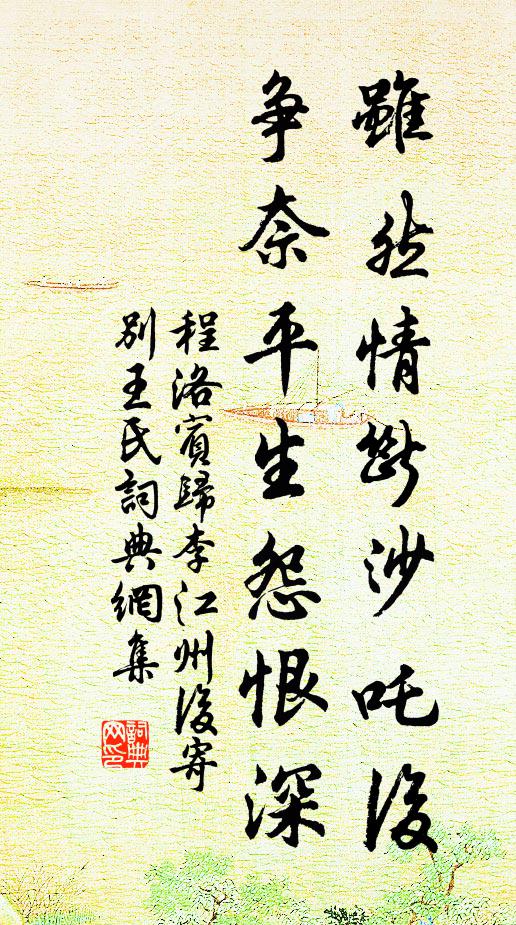 雖然情斷沙吒後
争奈平生怨恨深
程洛賓歸李江州後寄
別王氏詞典網集
詞典
网印